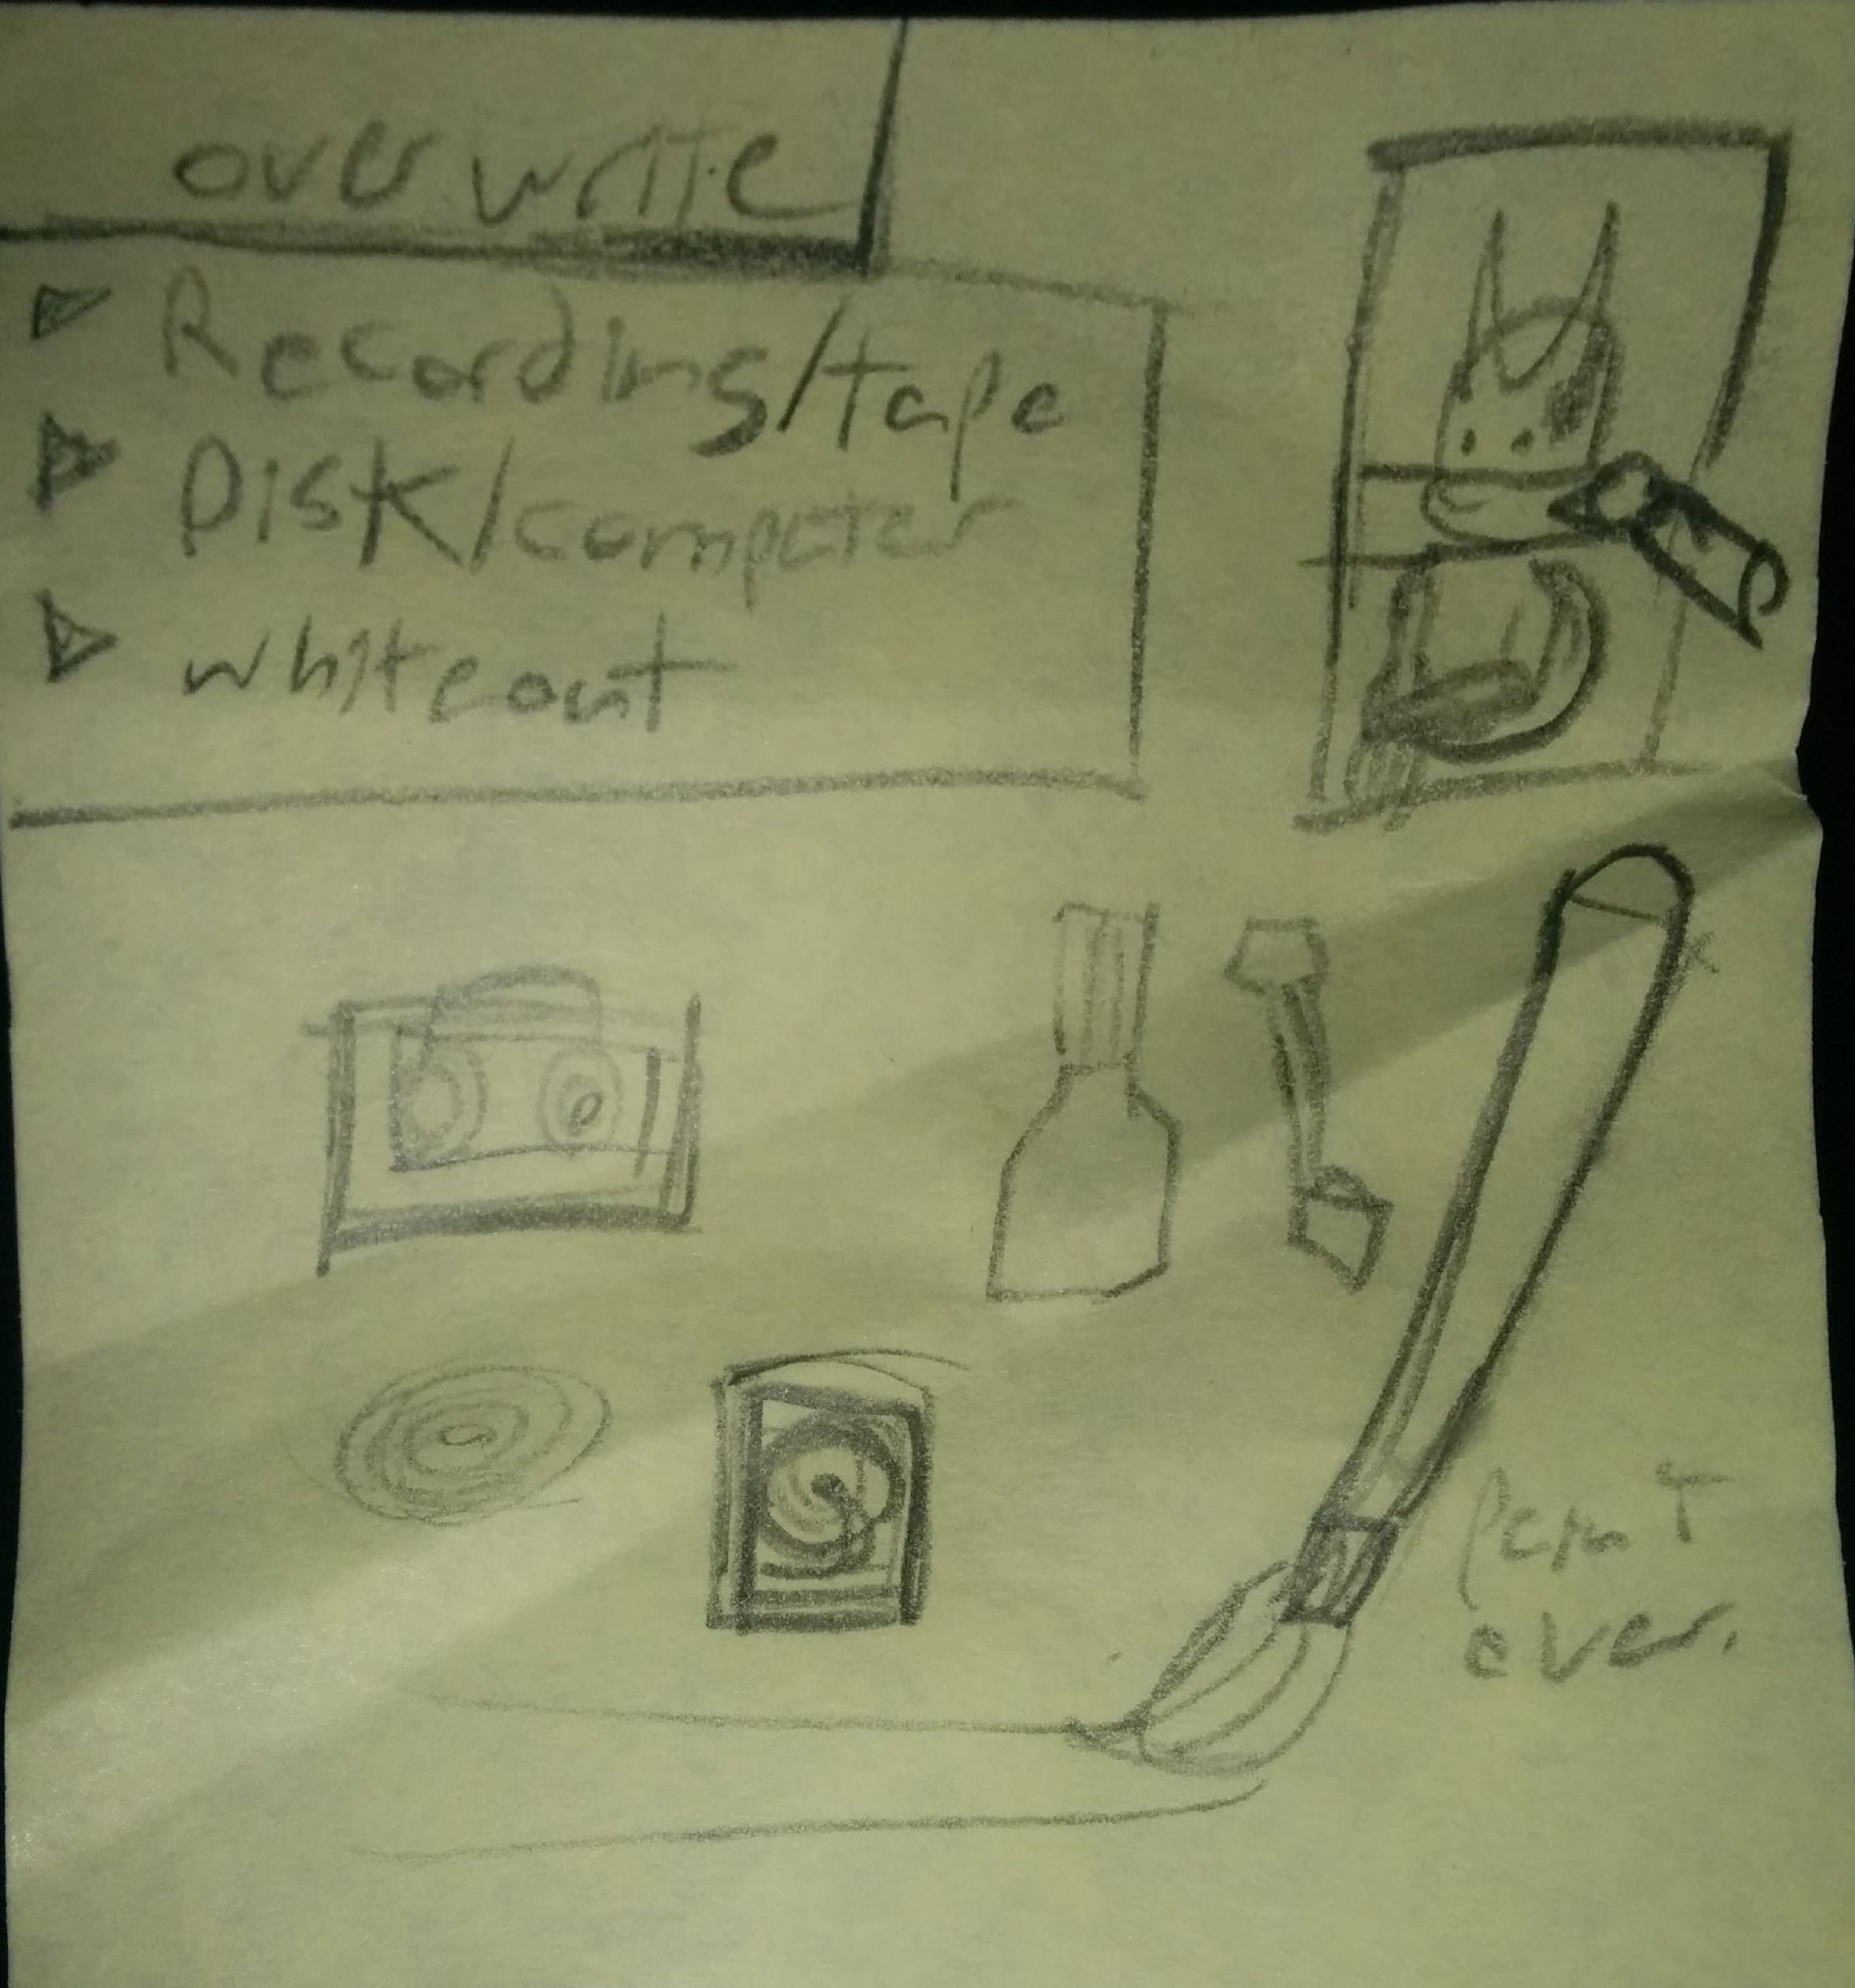 over write
Recording/tape
Disk/computer
whiteout
paint
over.